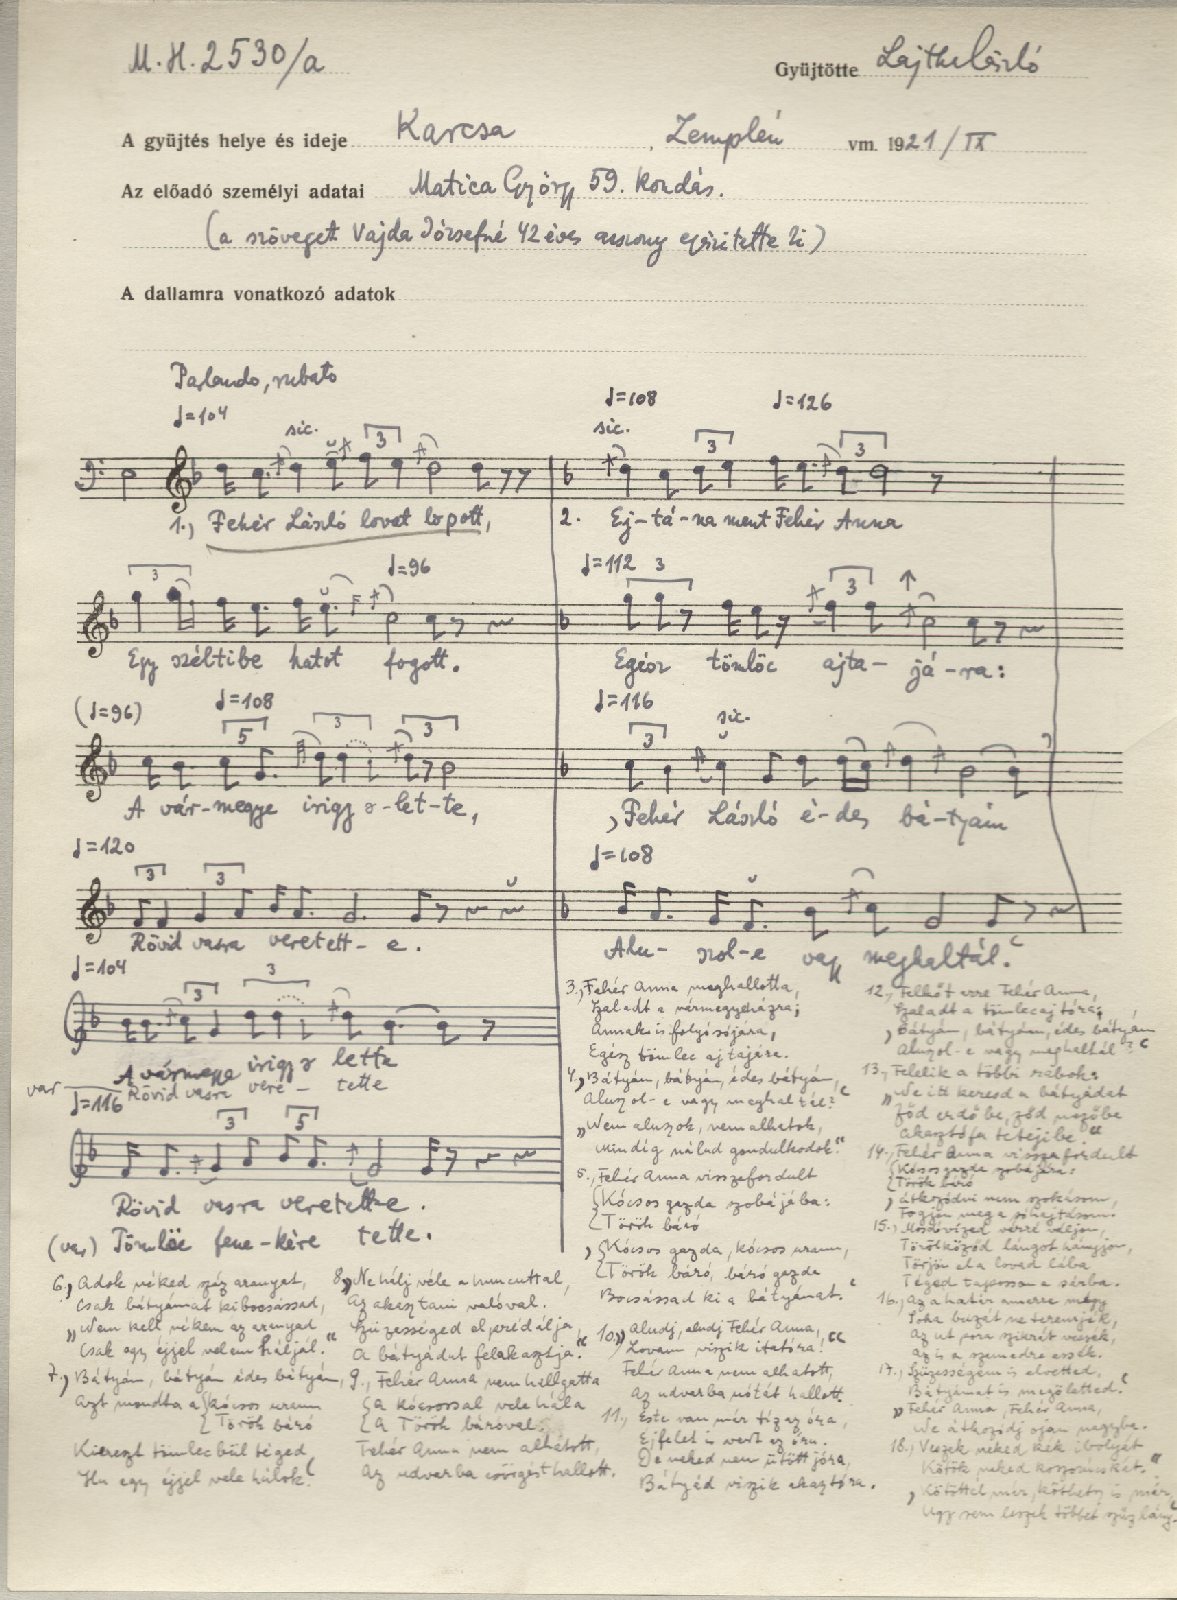 M.H. 2530/a
Gyüjtötte Lajtha László
A gyüjtés helye és ideje Karcsa, Zemplén vm. 1921/IX
Az előadó személyi adatai Matica György 59. kondás.
(a szöveget Vajda Józsefné 42 éves asszony egészitette ki)
A dallamra vonatkozó adatok
Parlando, rubato
♩=104
sic.
3
1., Fehér László lovat lopott,
♩=108 ♩=126
sic.
3 3
2. Ej-tá-na ment Fehér Anna
3 ♩=96
Egy széltibe hatot fogott.
♩=112 3 3
Egész tömlöc ajta-já-ra:
(♩=96) ♩=108
5 3 3
A vár-megye irigy-let-te,
♩=116
3 sic.
Fehér László é-des bá-tyám
♩=120
3 3
Rövid vasra veretett-e.
♩=108
Alu-szol-e vagy meghaltál.
♩=104
3 3
A vármegye irigy lette
var Rövid vasra vere-tette
♩=116
3 5
Rövid vasra veretette.
(var) Tömlöc fene-kére tette.
3., Fehér Anna meghallotta,
Szaladt a vármegyeházra;
Annak is folyósójára,
Egész tömlec ajtajára.
4., Bátyám, bátyám, édes bátyám,
Aluszol-e vagy meghaltál?
„Nem aluszok, nem alhatok,
Mindég nálad gondulkodok."
5., Fehér Anna visszafordult
Kócsos gazda szobájába:
Török báró
Kócsos gazda, kócsos uram,
Török báró, báró gazda
Bocsássad ki a bátyámat.
6., Adok néked száz aranyat,
Csak bátyámat kibocsássad,
„Nem kell nékem az aranyad
Csak egy éjjel velem háljál."
7., Bátyám, bátyám édes bátyám,
Azt mondta a kócsos uram
Török báró
Kiereszt tömlecbül téged
Ha egy éjjel vele hálok.
8., „Ne hálj véle a huncuttal,
Az akasztani valóval.
Szüzességed elprédálja,
A bátyádat felakasztja."
9., Fehér Anna nem hallgatta
A kócsossal vele hála
A Török báróval.
Fehér Anna nem alhatott,
Az udvarba csörgést hallott.
10., „Aludj, aludj Fehér Anna,
Lovam viszik itatóra!"
Fehér Anna nem alhatott,
Az udvarba nótát hallott.
11., Este van már tíz az óra,
Éjfelet is vert az óra.
De neked nem ütött jóra,
Bátyád viszik akaztóra.
12., Felkőt erre Fehér Anna,
Szaladt a tömlecajtóra;
Bátyám, bátyám, édes bátyám
Aluszol-e vagy meghaltál?
13., Felelik a többi rabok:
„Ne itt keresd a bátyádat
Ződ erdőbe, ződ mezőbe
Akasztófa tetejibe."
14., Fehér Anna visszafordult
Kócsos gazda szobájára:
Török báró
Átkozódni nem szokásom,
Fogjon meg a sóhajtásom!
15., Mosdóvized vérré váljon,
Törölköződ lángot hányjon,
Törjön el a lovad lába
Téged taposson a sárba.
16., Az a határ amerre mégy
Soha buzát ne teremjék,
Az ut pora szikrát vessék,
Az is a szemedre essék.
17., Szüzességem is elvetted,
Bátyámat is megöletted.
„Fehér Anna, Fehér Anna,
Ne átkozódj ojan nagyba.
18., Veszek neked kék ibolyát
Kötök neked koszorúcskát."
Kötöttél már, köthetsz is már,
Ugy sem leszek többet szűz lány.